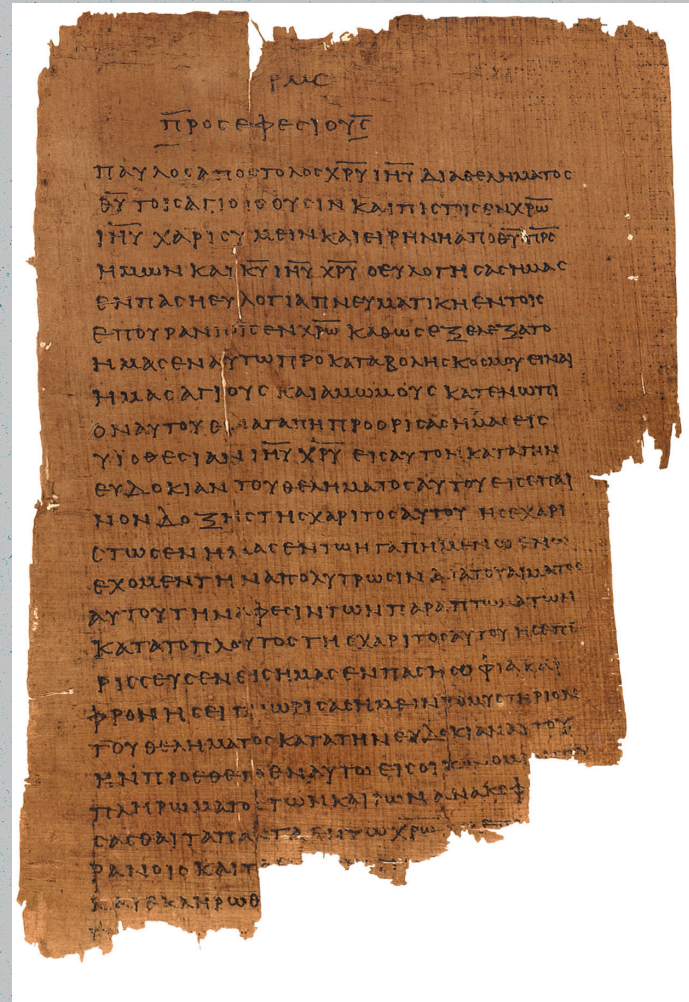 ΡΜϚ
ΠΡΟϹΕΦΕϹΙΟΥϹ
ΠΑΥΛΟϹΑΠΟϹΤΟΛΟϹΧΡΥ ΙΗΥ ΔΙΑΘΕΛΗΜΑΤΟϹ
ΘΥ ΤΟΙϹΑΓΙΟΙϹΟΥϹΙΝ ΚΑΙΠΙϹΤΟΙϹΕΝΧΡΩ
ΙΗΥ ΧΑΡΙϹΥΜΕΙΝΚΑΙΕΙΡΗΝΗΑΠΟΘΥΠΡϹ
ΗΜΩΝ ΚΑΙ ΚΥ ΙΗΥ ΧΡΥ ΟΕΥΛΟΓΗϹΑϹΗΜΑϹ
ΕΝΠΑϹΗΕΥΛΟΓΙΑΠΝΕΥΜΑΤΙΚΗΕΝΤΟΙϹ
ΕΠΟΥΡΑΝΙΟΙϹΕΝΧΡΩ ΚΑΘΩϹΕΞΕΛΕΞΑΤΟ
ΗΜΑϹΕΝΑΥΤΩΠΡΟΚΑΤΑΒΟΛΗϹΚΟϹΜΟΥΕΙΝΑΙ
ΗΜΑϹΑΓΙΟΥϹ ΚΑΙΑΜΩΜΟΥϹ ΚΑΤΕΝΩΠΙ
ΟΝΑΥΤΟΥΕΝΑΓΑΠΗΠΡΟΟΡΙϹΑϹΗΜΑϹΕΙϹ
ΥΙΟΘΕϹΙΑΝΙΗΥ ΧΡΥ ΕΙϹΑΥΤΟΝΚΑΤΑΤΗΝ
ΕΥΔΟΚΙΑΝ ΤΟΥΘΕΛΗΜΑΤΟϹΑΥΤΟΥΕΙϹΕΠΑΙ
ΝΟΝΔΟΞΗϹΤΗϹΧΑΡΙΤΟϹΑΥΤΟΥ ΗϹΕΧΑΡΙ
ϹΤΩϹΕΝ ΗΜΑϹΕΝΤΩΗΓΑΠΗΜΕΝΩΕΝΩ
ΕΧΟΜΕΝΤΗΝΑΠΟΛΥΤΡΩϹΙΝΔΙΑΤΟΥΑΙΜΑΤΟϹ
ΑΥΤΟΥΤΗΝΑΦΕϹΙΝΤΩΝΠΑΡΑΠΤΩΜΑΤΩΝ
ΚΑΤΑΤΟΠΛΟΥΤΟϹΤΗϹΧΑΡΙΤΟϹΑΥΤΟΥ ΗϹΕΠΕ
ΡΙϹϹΕΥϹΕΝΕΙϹΗΜΑϹΕΝΠΑϹΗϹΟΦΙΑΚΑΙ
ΦΡΟΝΗϹΕΙΓΝΩΡΙϹΑϹΗΜΕΙΝΤΟΜΥϹΤΗΡΙΟΝ
ΤΟΥΘΕΛΗΜΑΤΟϹΚΑΤΑΤΗΝΕΥΔΟΚΙΑΝΑΥΤΟΥ
ΗΝΠΡΟΕΘΕΤΟΕΝΑΥΤΩ ΕΙϹΟΙΚΟΝΟΜ
ΠΛΗΡΩΜΑΤΟϹΤΩΝΚΑΙΡΩΝΑΝΑΚΕΦ
ϹΑϹΘΑΙΤΑΠΑΝΤΑΕΝΤΩΧΡΩ
ΡΑΝΟΙϹ ΚΑΙΤ
ΚΑΙΕΚΛΗΡΩΘ